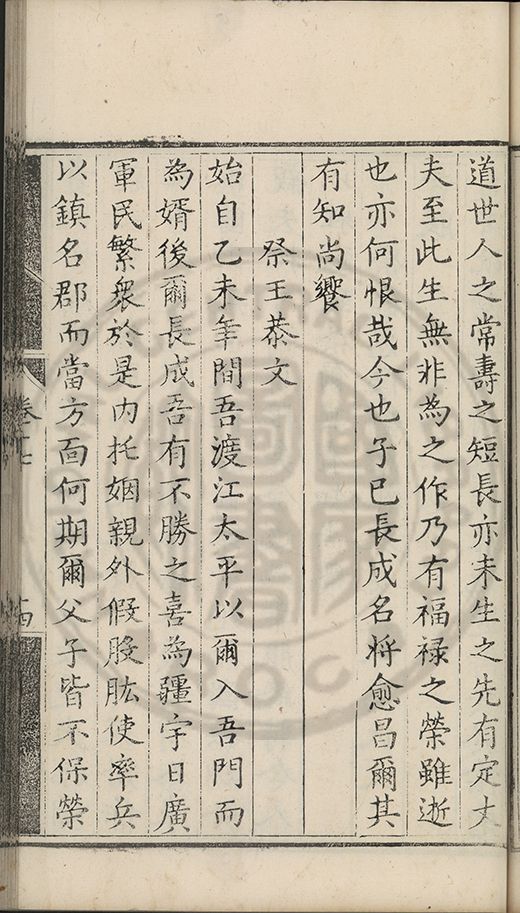 道世人之常壽之短長亦未生之先有定丈
夫至此生無非為之作乃有福禄之榮雖逝
也亦何恨哉今也子已長成名将愈昌爾其
有知尚饗
祭王恭文
始自乙未年間吾渡江太平以爾入吾門而
為婿後爾長成吾有不勝之喜為疆宇日廣
軍民繁衆於是内托姻親外假股肱使率兵
以鎮名郡而當方面何期爾父子皆不保榮